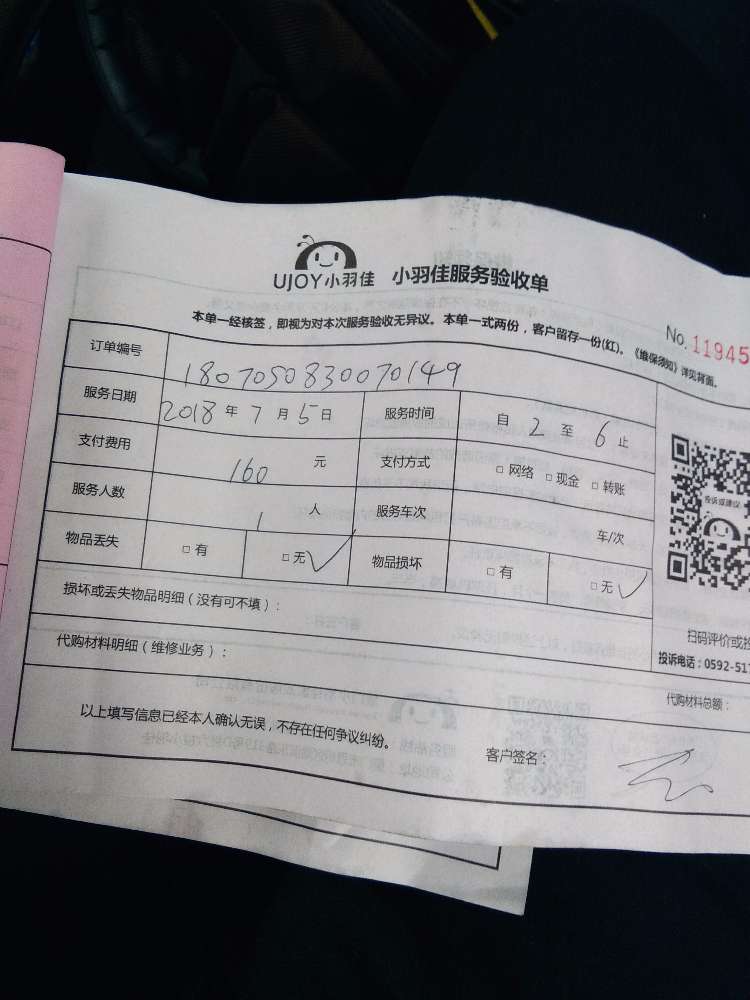 UJOY小羽佳 小羽佳服务验收单
本单一经核签，即视为对本次服务验收无异议。本单一式两份，客户留存一份(红)。《维保须知》详见背面。
No. 11945
订单编号 1807050830070149
服务日期 2018 年 7 月 5 日 服务时间 自 2 至 6 止
支付费用 160 元 支付方式 □ 网络 □ 现金 □ 转账
服务人数 1 人 服务车次 车/次
物品丢失 □ 有 □ 无 物品损坏 □ 有 □ 无
损坏或丢失物品明细（没有可不填）：
代购材料明细（维修业务）：
代购材料总额：
以上填写信息已经本人确认无误，不存在任何争议纠纷。
客户签名：
投诉或建议
扫码评价或投
投诉电话：0592-517